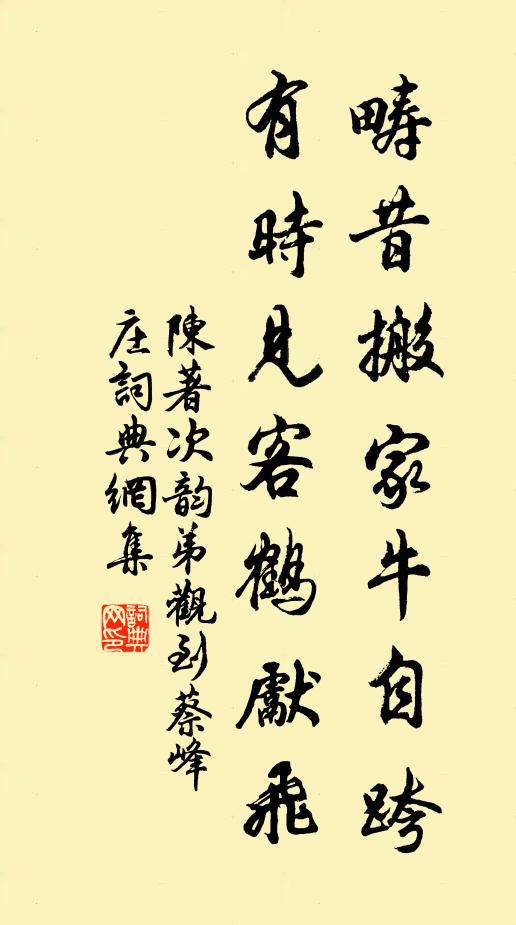 疇昔搬家牛自跨
有時見客鶴獻飛
陳著次韵弟觀到蔡峰
庄詞典網集
詞典网印